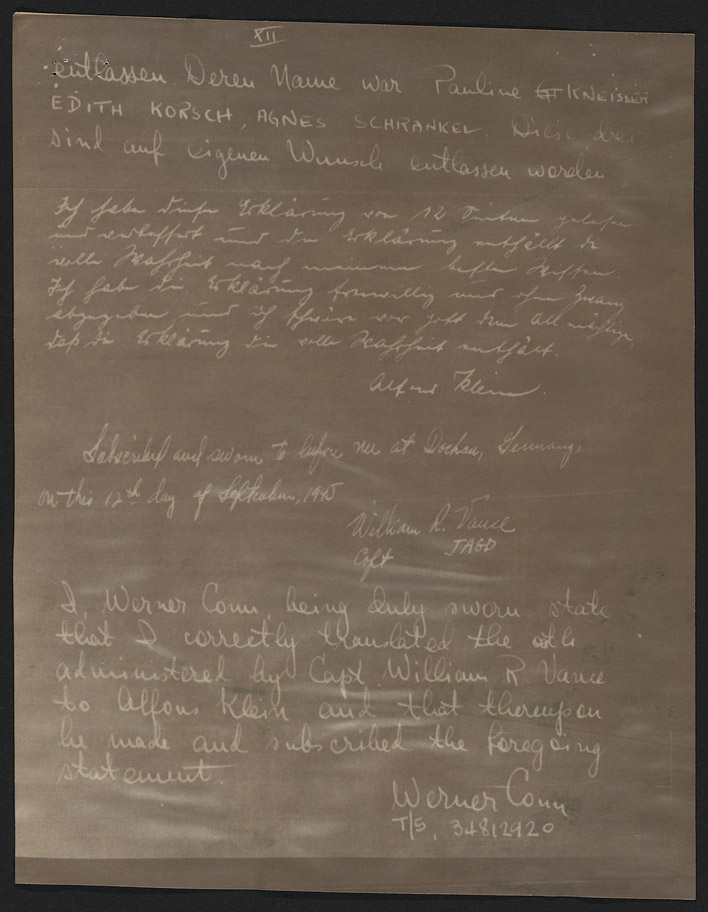 XII
entlassen. Deren Name war Pauline KNEISSLER
EDITH KORSCH, AGNES SCHRANKEL. Diese drei
sind auf eigenen Wunsch entlassen worden
Ich habe diese Erklärung von 12 Seiten gelesen
und verbessert und die Erklärung enthällt die
volle Wahrheit nach meinem besten Wissen.
Ich habe die Erklärung freiwillig und ohne Zwang
abgegeben und ich schwöre vor Gott dem Allmächtigen,
daß die Erklärung die volle Wahrheit enthält.
Alfons Klein.
Subscribed and sworn to before me at Dachau, Germany,
on this 12th day of September, 1945
William R. Vance
Capt JAGD
I, Werner Conn, being duly sworn state
that I correctly translated the oath
administered by Capt. William R Vance
to Alfons Klein and that thereupon
he made and subscribed the foregoing
statement.
Werner Conn
T/5, 34812920